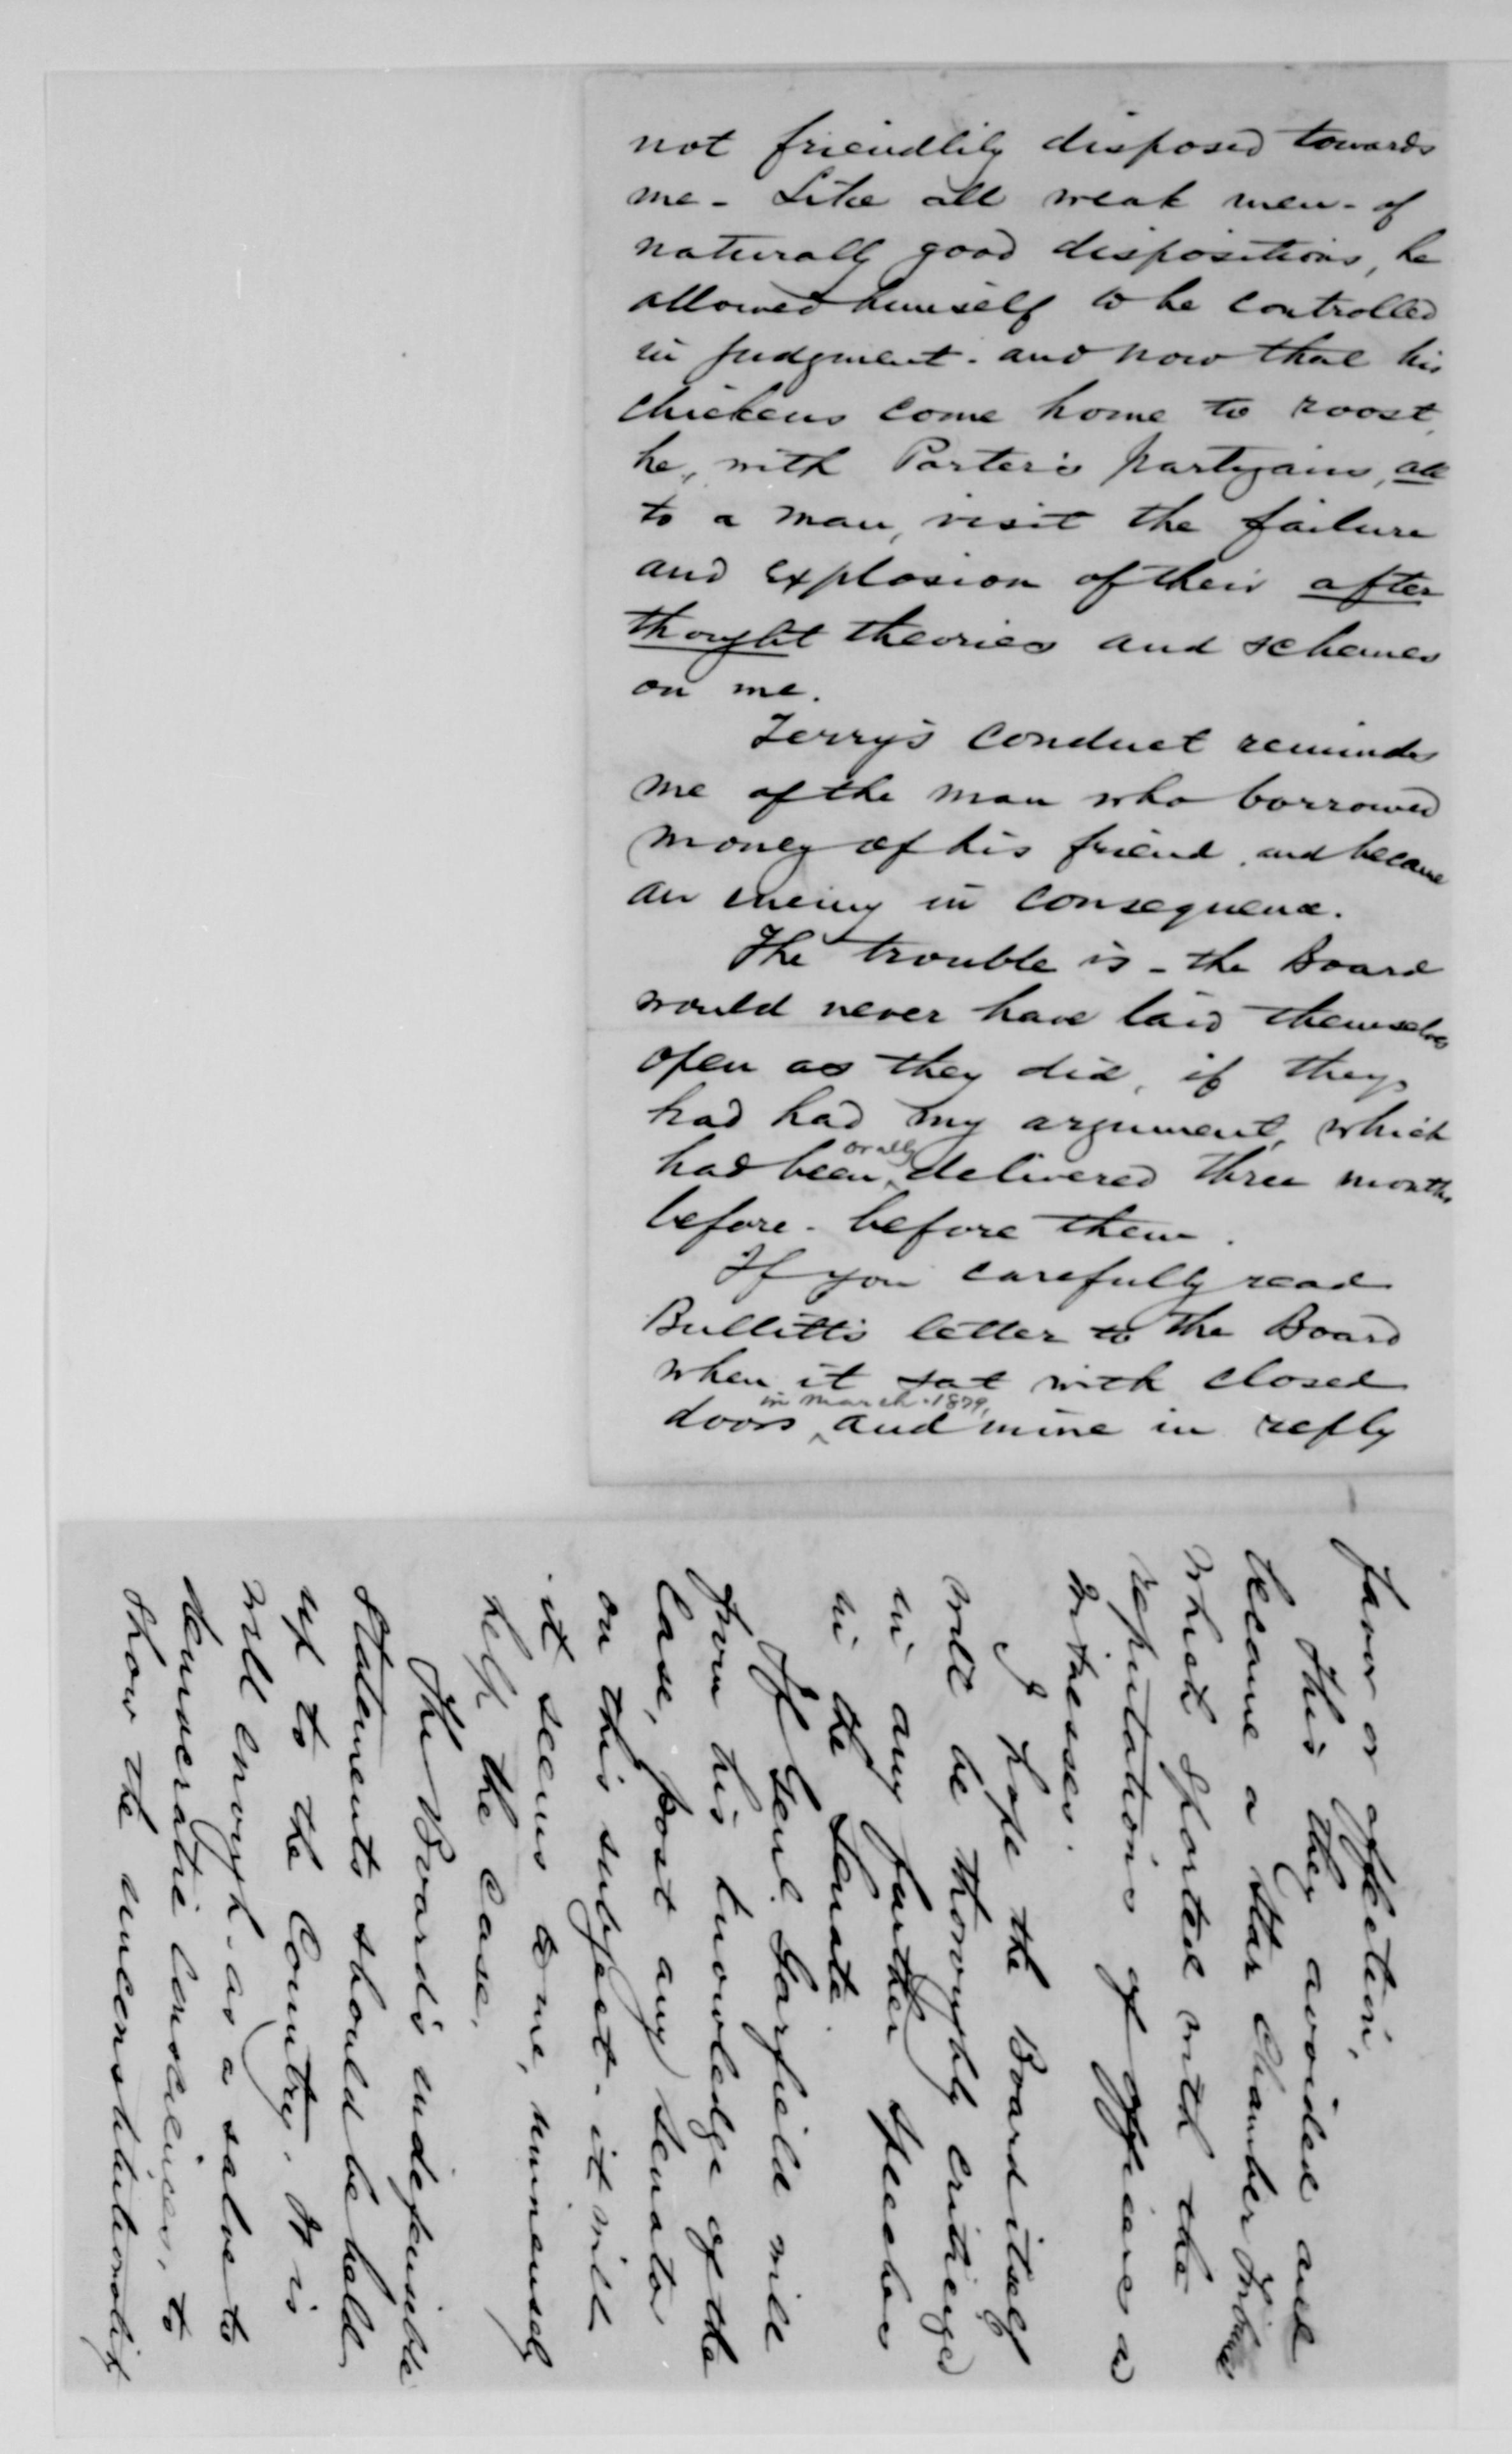 not friendlily disposed towards
me - Like all weak men - of
naturally good dispositions, he
allowed himself to be controlled
in judgment - and now that his
chickens come home to roost,
he, with Porter's partyans, all
to a man, visit the failure
and explosion of their after
thought theories and schemes
on me.
Terry's conduct reminds
me of the man who borrowed
money of his friend, and became
an enemy in consequence.
The trouble is - the Board
would never have laid themselves
open as they did, if they
had had my argument, which
had been orally delivered three months
before - before them.
If you carefully read
Bullitt's letter to the Board
when it sat with closed
doors in March 1879, and mine in reply
favor or affection,
This they avoided and
became a Star Chamber Tribunal
which sported with the
reputations of officers as
witnesses.
I hope the Board itself
will be thoroughly criticized
in any further speeches
in the Senate.
If Genl. Garfield will
from his knowledge of the
Case, post any Senator
on this subject - it will
it seems to me, immensely
help the case.
The Board's indefensible
statements should be held
up to the Country. It is
well enough - as a salve to
democratic consciences, to
show the unconstitutionality